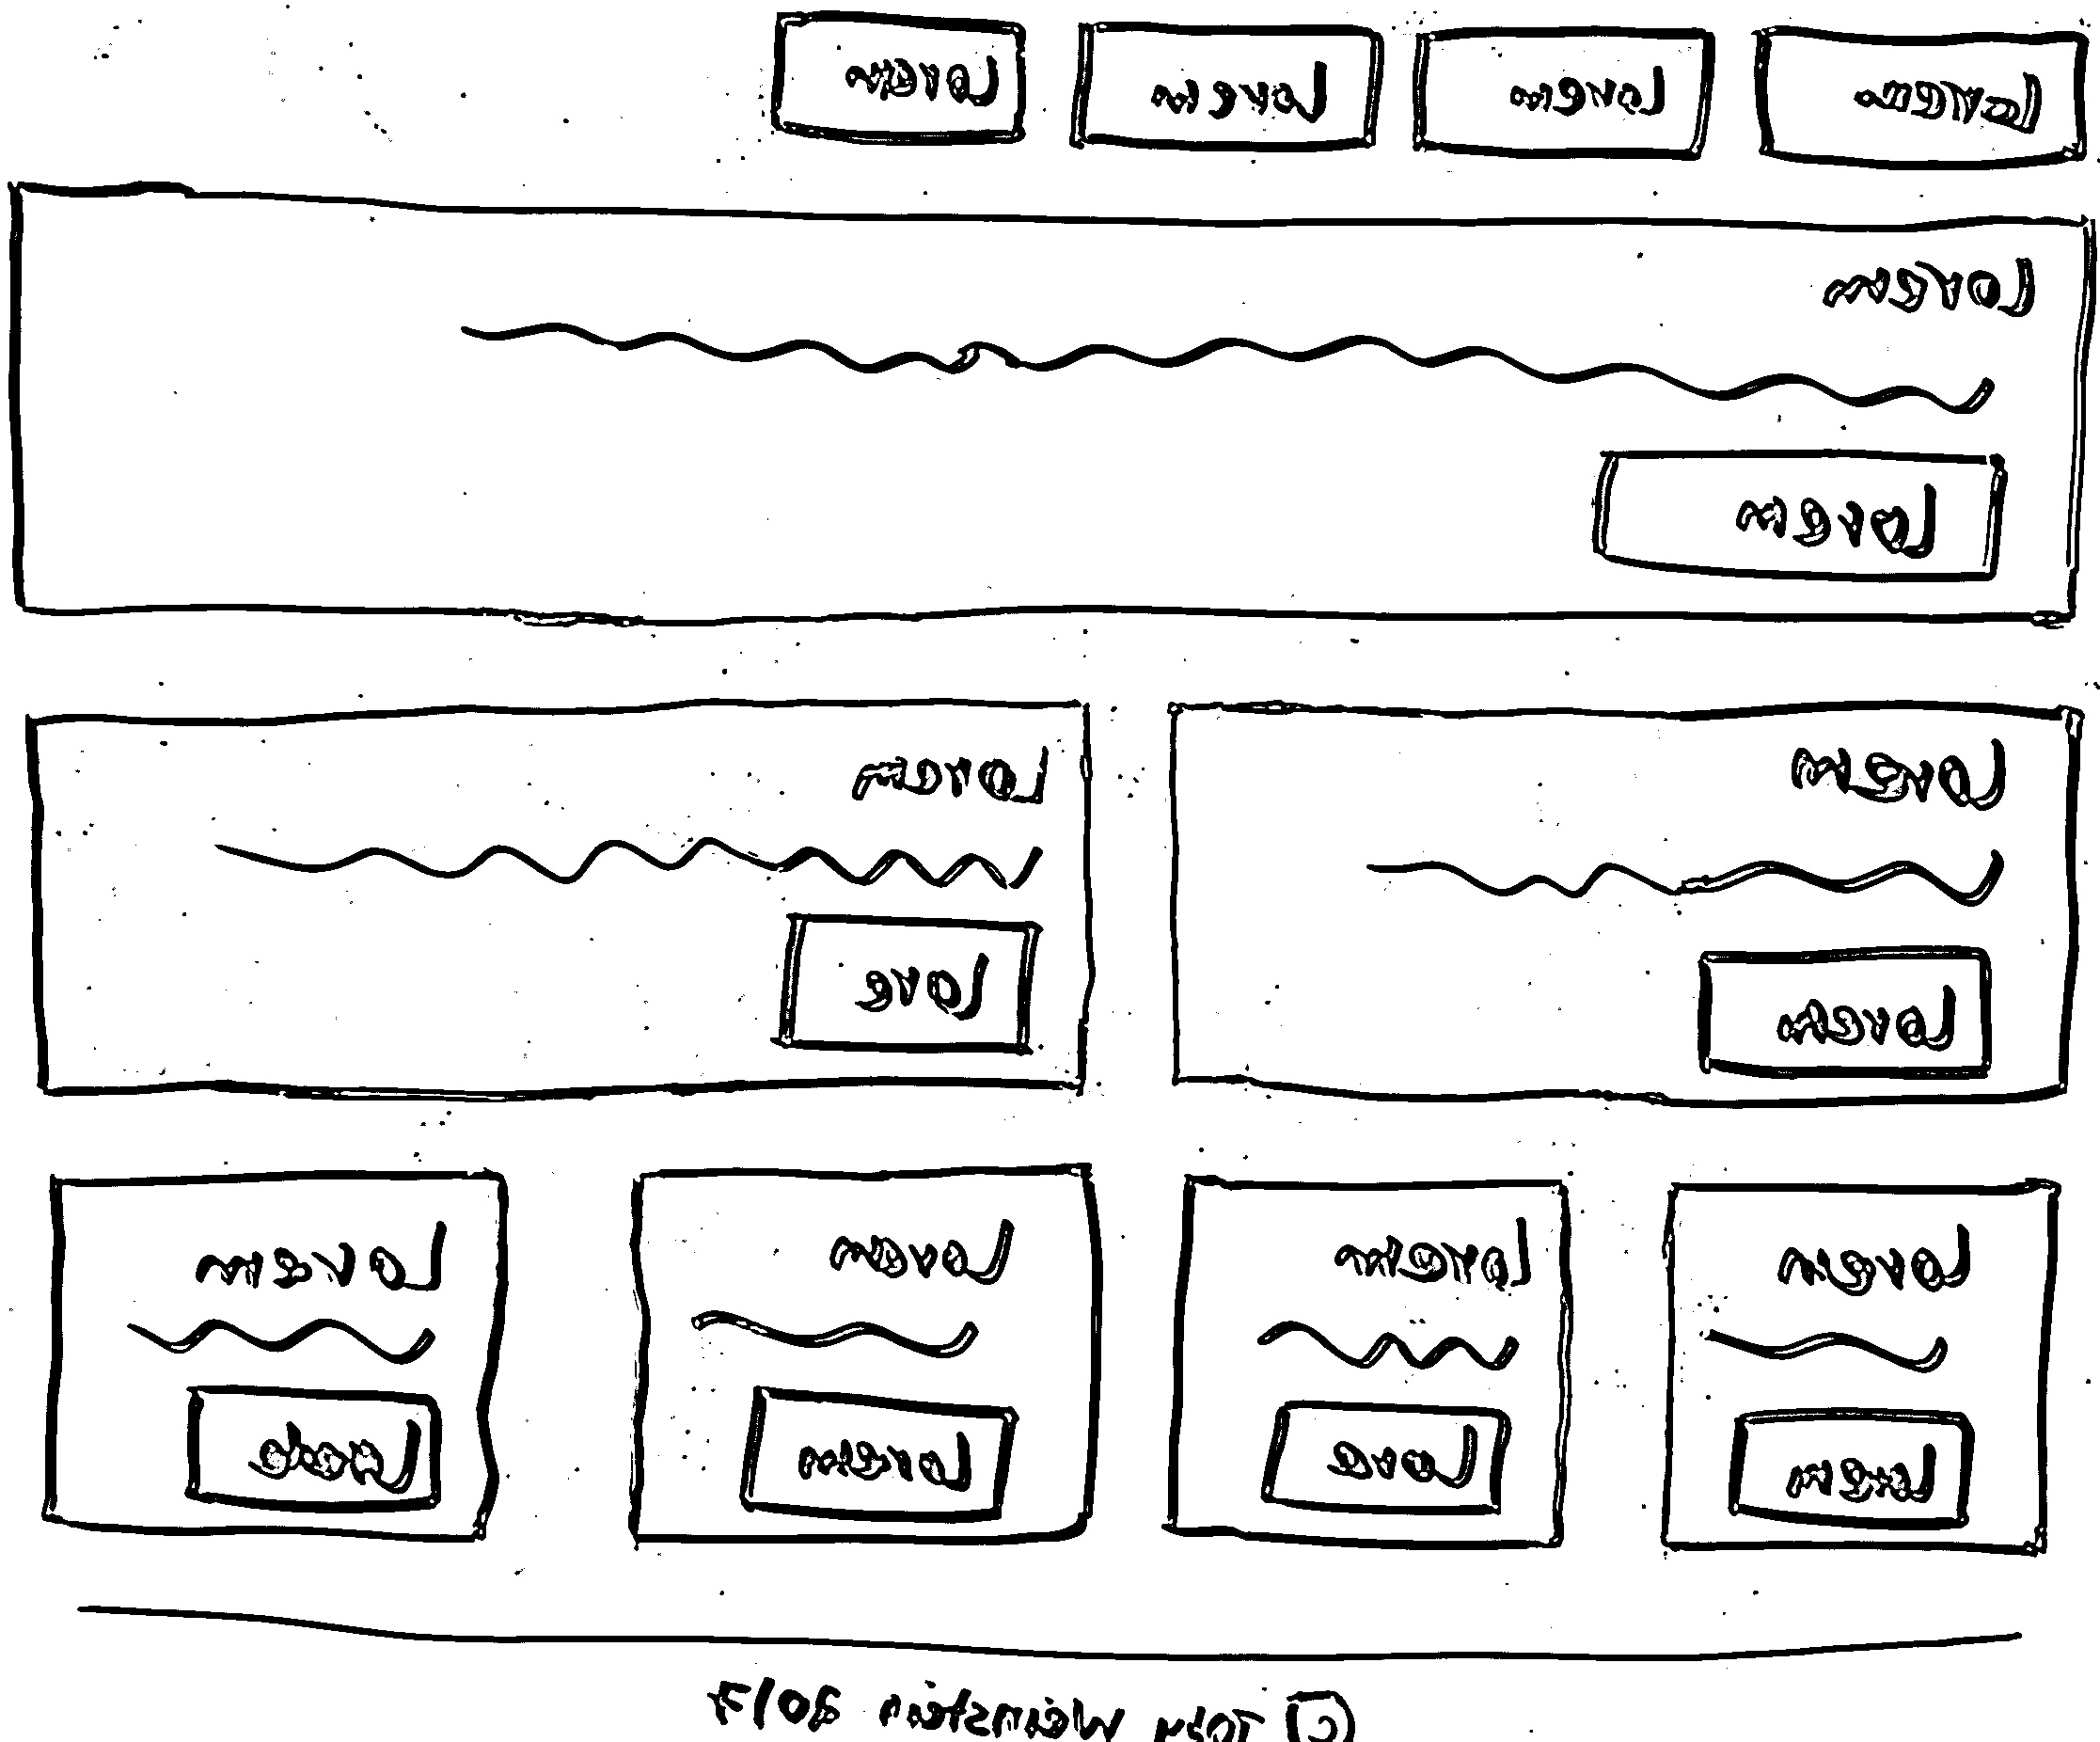 Lorem Lorem Lorem Lorem
Lorem
Lorem
Lorem Lorem
Lorem Lore
Lorem Lorem Lorem Lorem
Lorem Lore Lorem
© Toby Weinstein 2017